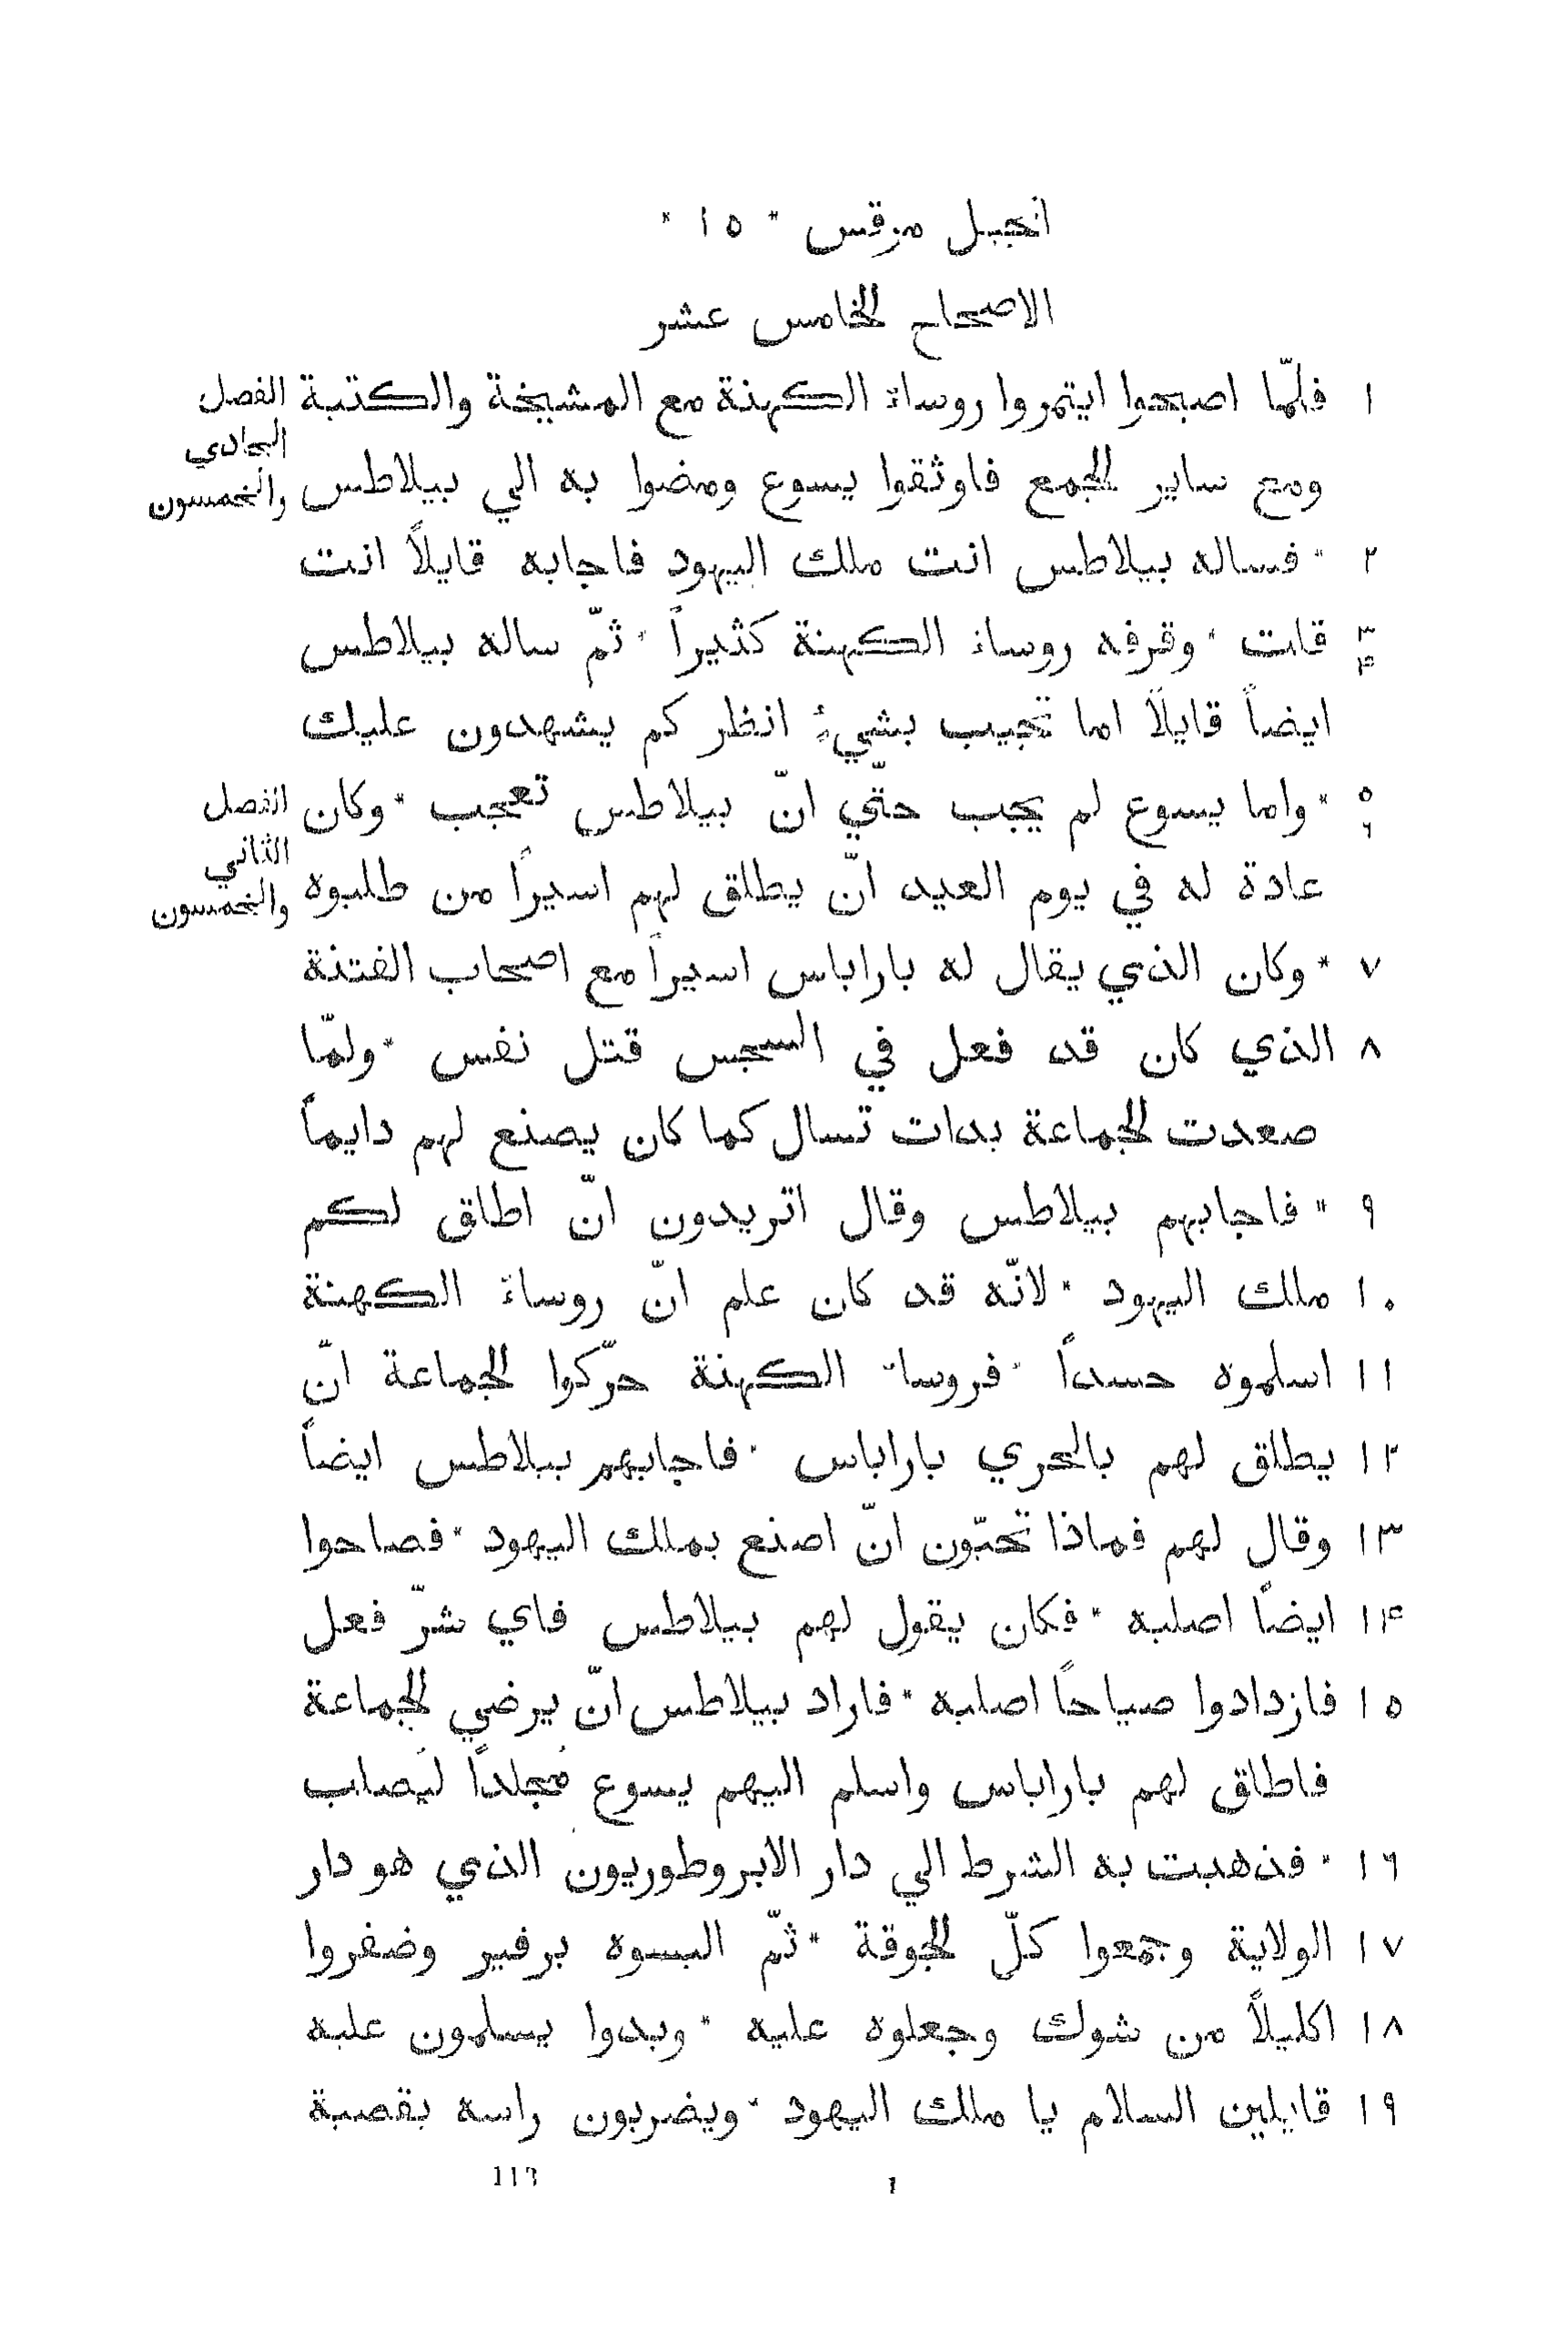 انجيل مرقس * ١٥ *
الاصحاح الخامس عشر
١ فلمّا اصبحوا ايتمروا روساء الكهنة مع المشيخة والكتبة
الفصل
الحادي
والخمسون
ومع ساير الجمع فاوثقوا يسوع ومضوا به الي بيلاطس
٢ * فساله بيلاطس انت ملك اليهود فاجابه قايلاً انت
٣ قلت * وقرفه روساء الكهنة كثيراً * ثمّ ساله بيلاطس
٤
ايضاً قايلاً اما تجيب بشيء انظر كم يشهدون عليك
٥ * واما يسوع لم يجب حتّي انّ بيلاطس تعجب * وكان
٦
الفصل
الثاني
والخمسون
عادة له في يوم العيد انّ يطلق لهم اسيراً من طلبوه
٧ * وكان الذي يقال له باراباس اسيراً مع اصحاب الفتنة
٨ الذي كان قد فعل في السجس قتل نفس * ولمّا
صعدت الجماعة بدات تسال كما كان يصنع لهم دايماً
٩ * فاجابهم بيلاطس وقال اتريدون انّ اطلق لكم
١٠ ملك اليهود * لانّه قد كان علم انّ روساء الكهنة
١١ اسلموه حسداً * فروساء الكهنة حرّكوا الجماعة انّ
١٢ يطلق لهم بالحري باراباس * فاجابهم بيلاطس ايضاً
١٣ وقال لهم فماذا تحبّون انّ اصنع بملك اليهود * فصاحوا
١٤ ايضاً اصلبه * فكان يقول لهم بيلاطس فاي شرّ فعل
١٥ فازدادوا صياحاً اصلبه * فاراد بيلاطس انّ يرضي الجماعة
فاطلق لهم باراباس واسلم اليهم يسوع مُجلداً ليُصلب
١٦ * فذهبت به الشرط الي دار الابروطوريون الذي هو دار
١٧ الولاية وجمعوا كلّ الجوقة * ثمّ البسوه برفير وضفروا
١٨ اكليلاً من شوك وجعلوه عليه * وبدوا يسلمون عليه
١٩ قايلين السلام يا ملك اليهود * ويضربون راسه بقصبة
113